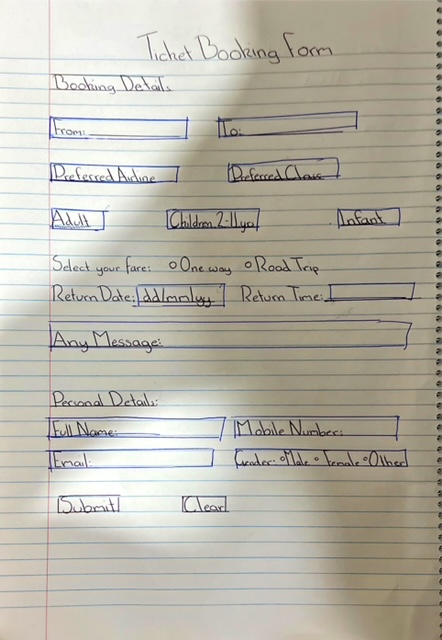 Ticket Booking Form
Booking Details
From: To:
Preferred Airline Preferred Class
Adult Children 2-11yo Infant
Select your fare: One way Road Trip
Return Date: dd/mm/yy Return Time:
Any Message:
Personal Details:
Full Name: Mobile Number:
Email: Gender: Male Female Other
Submit Clear